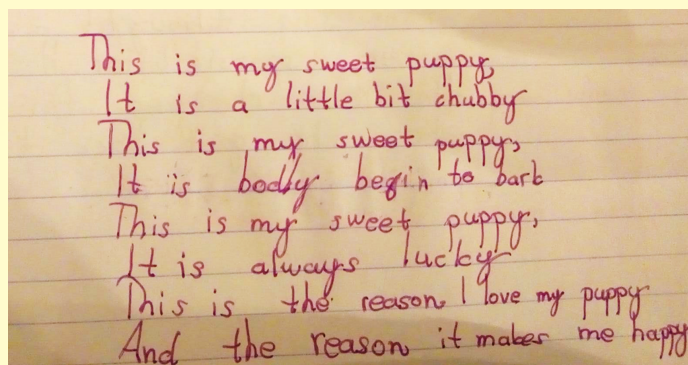 This is my sweet puppy,
It is a little bit chubby
This is my sweet puppy,
It is bodly begin to bark
This is my sweet puppy,
It is always lucky
This is the reason I love my puppy
And the reason it makes me happy